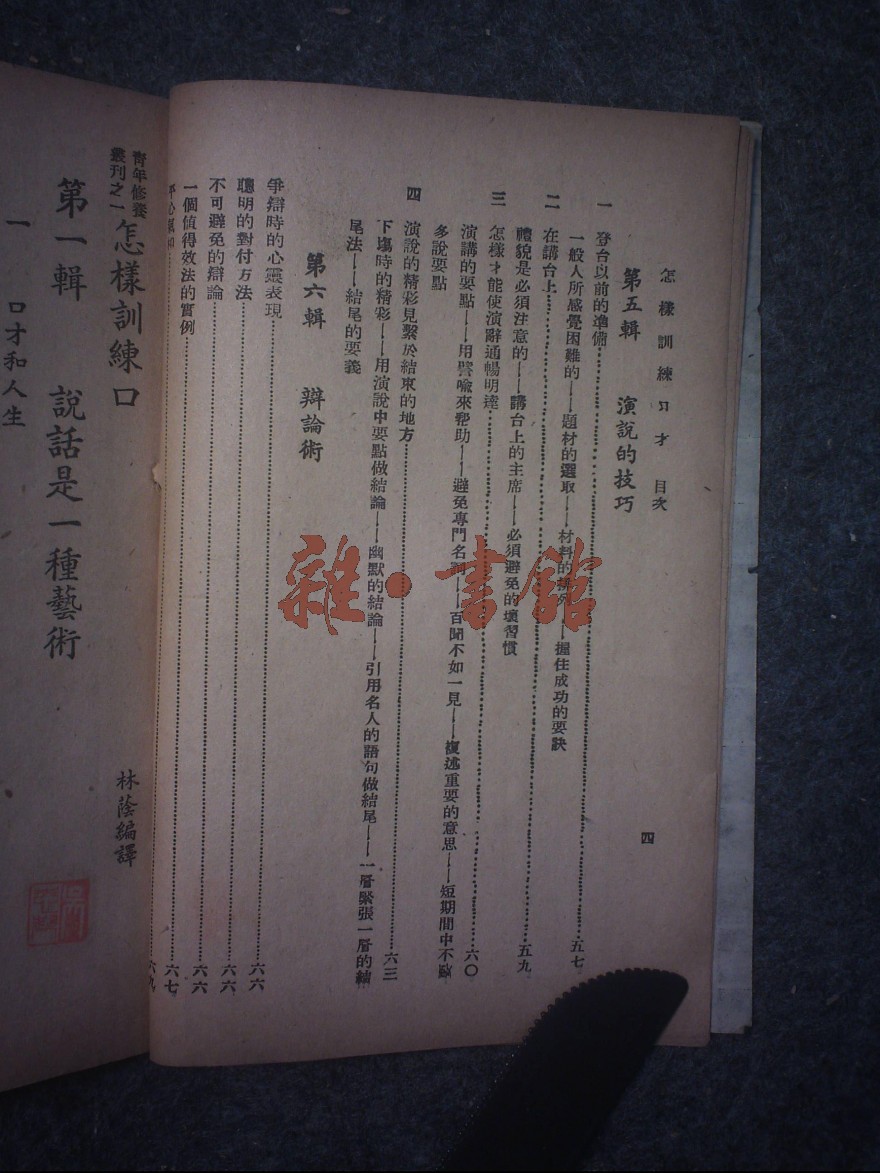 怎樣訓練口才　目次
四
第五輯　演說的技巧
一　登台以前的準備…………五七
一般人所感覺困難的——題材的選取——材料的排列——握住成功的要訣
二　在講台上…………五九
禮貌是必須注意的——講台上的主席——必須避免的壞習慣
三　怎樣才能使演辭通暢明達…………六〇
演講的要點——用譬喻來幫助——避免專門名詞——百聞不如一見——複述重要的意思——短期間中不
多說要點
四　演說的精彩見繫於結束的地方…………六三
下場時的精彩——用演說中要點做結論——幽默的結論——引用名人的語句做結尾——一層緊張一層的結
尾法——結尾的要義
第六輯　辯論術
爭辯時的心靈表現…………六六
聰明的對付方法…………六六
不可避免的辯論…………六六
一個值得效法的實例…………六七
平心…………六九
青年修養
叢刊之一
怎樣訓練口
林蔭編譯
第一輯　說話是一種藝術
一　口才和人生
雜·書館